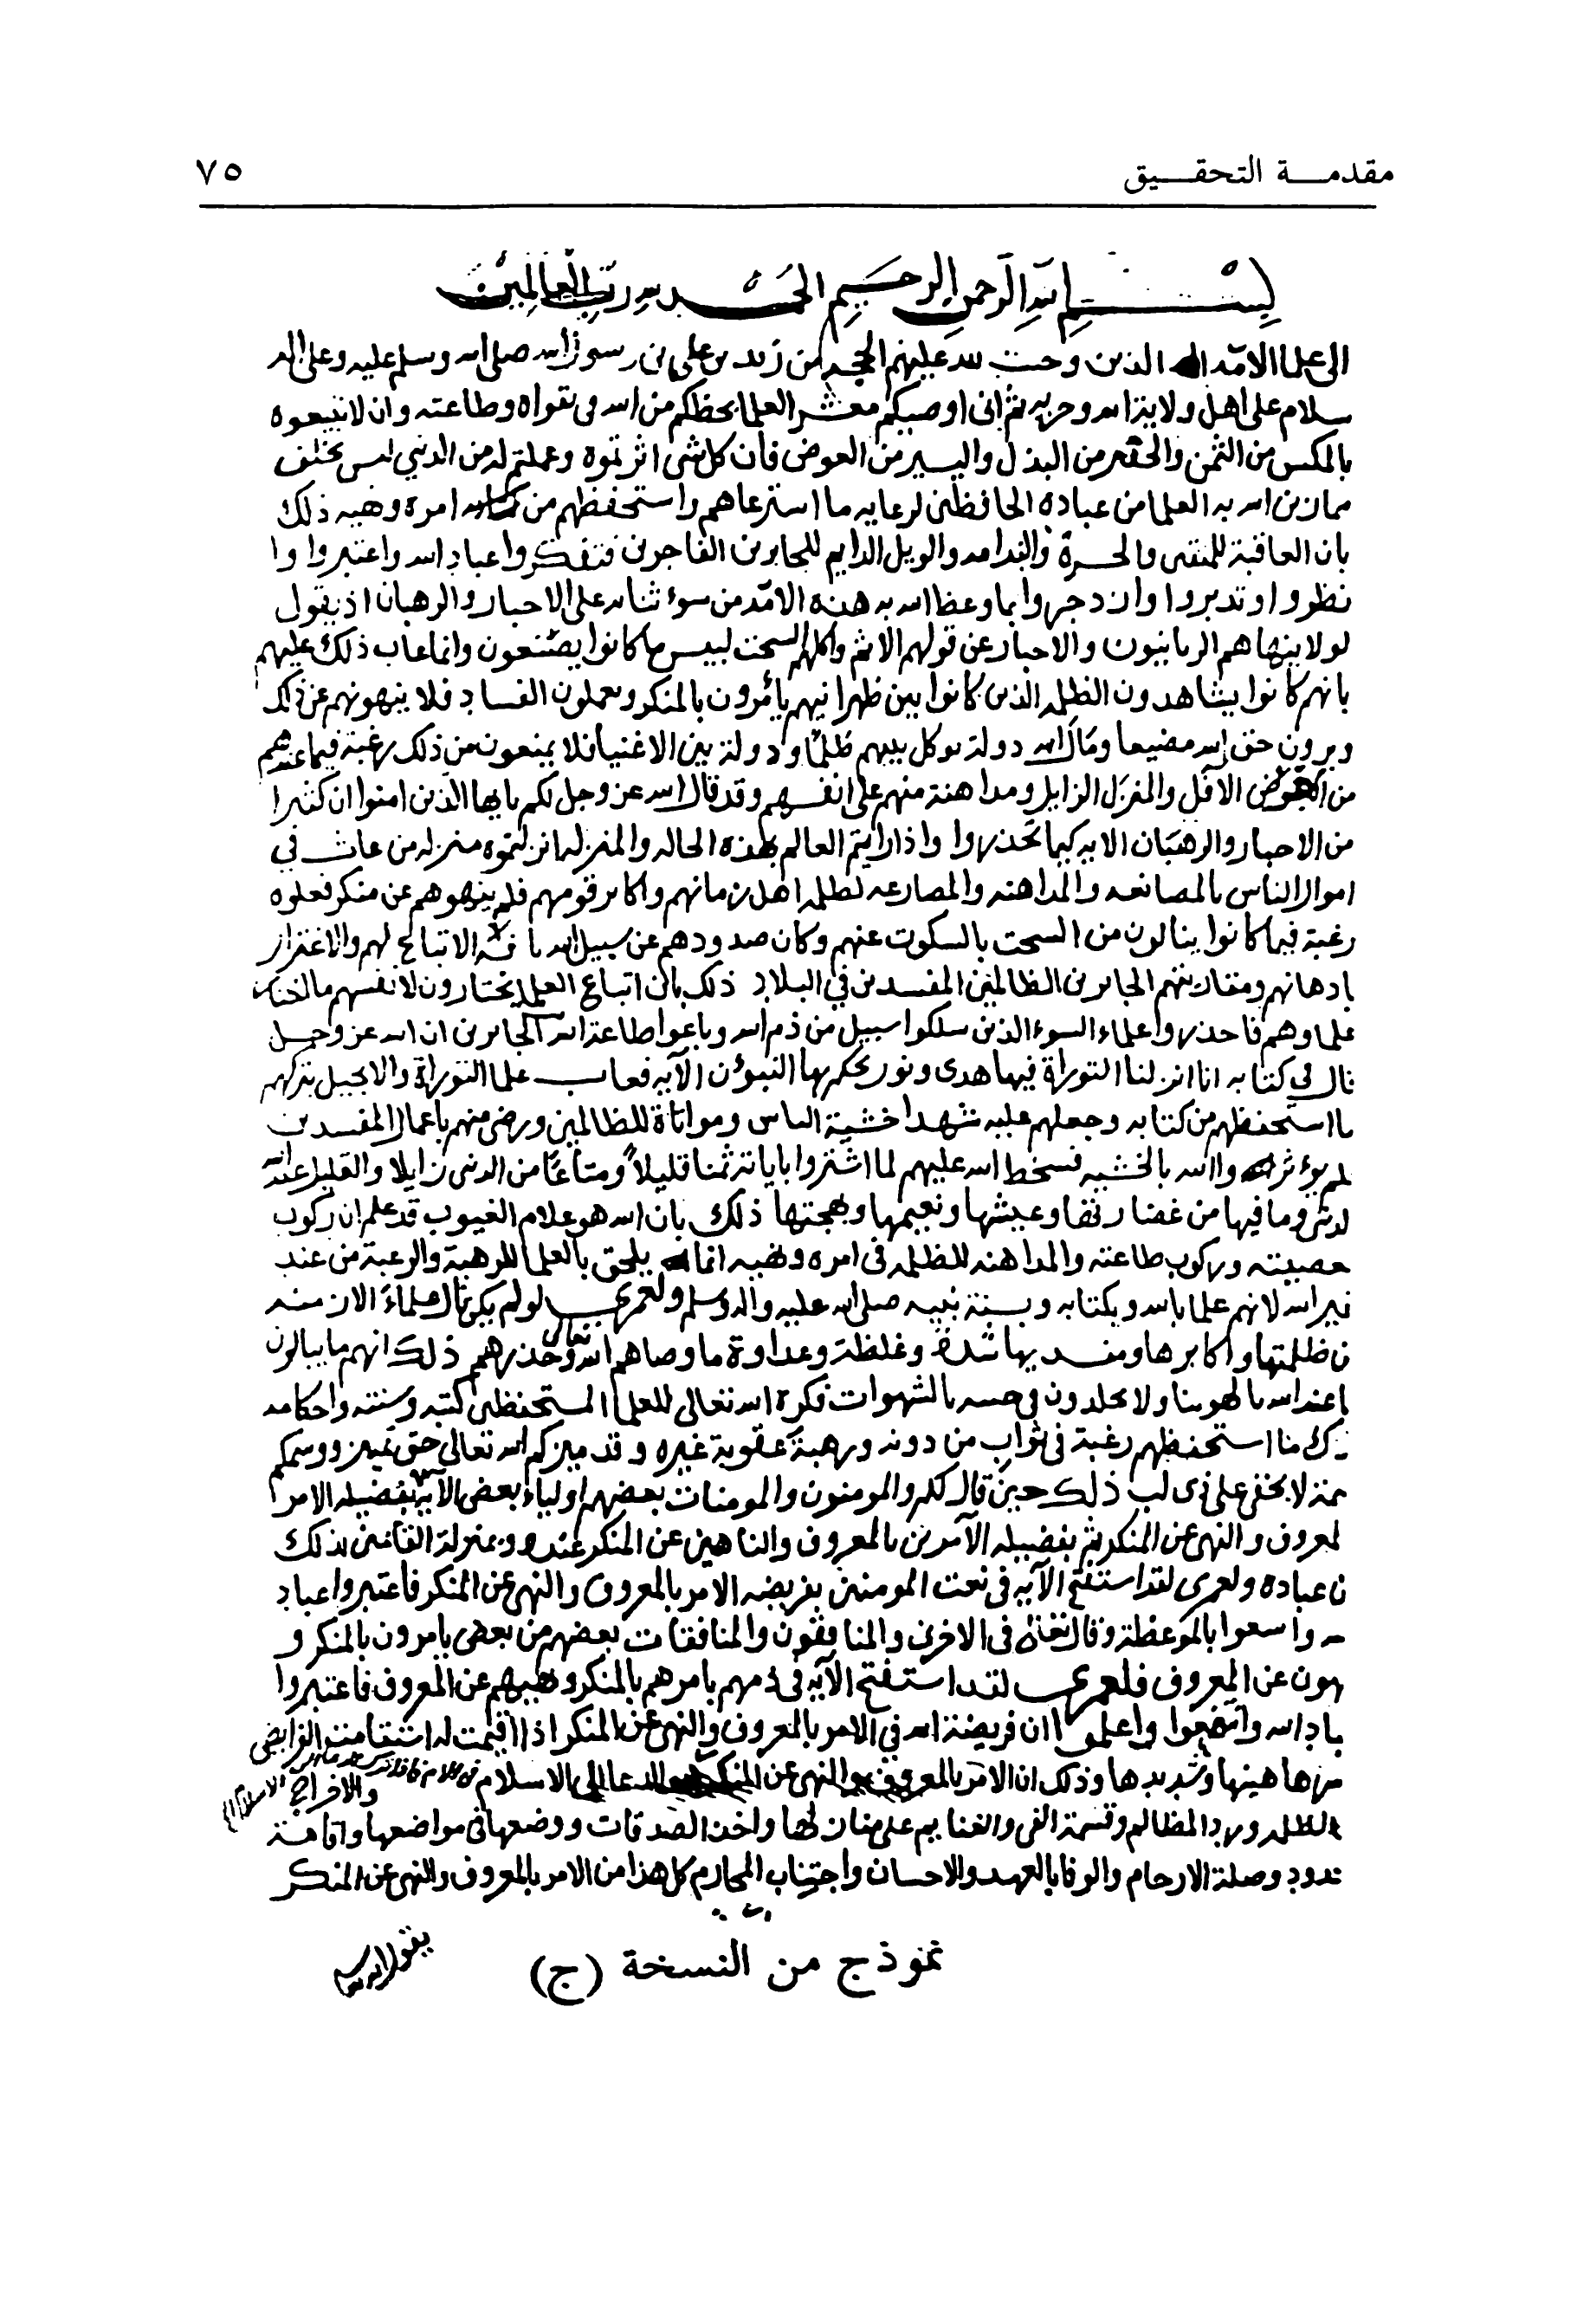 مقدمــة التحقــيق
٧٥
بسم الله الرحمن الرحيم الحمد لله رب العالمين
الى علما الامه الذين وجبت لله عليهم الحجه من زيد بن علي بن رسول الله صلى الله وسلم عليه وعلى اله
سلام على اهل ولاية الله وحزبه ثم انى اوصيكم معشر العلما بحظكم من الله فى تقواه وطاعته وان لا تبيعوه
بالمكس من الثمن والحقير من البذل واليسير من العوض فان كل شى اثرتموه وعملتم له من الدنيى ليس بخلف
مما زين الله به العلما من عباده الحافظين لرعايه ما استرعاهم واستحفظهم من امره ونهيه ذلك
بان العاقبة للمتقى والحسرة والندامه والويل الدايم للجايرين الفاجرين فتفكروا عباد الله واعتبروا وا
نظروا وتدبروا وازدجروا بما وعظ الله به هذه الامة من سوء ثنايه على الاحبار والرهبان اذ يقول
لولا ينهاهم الربانيون والاحبار عن قولهم الاثم واكلهم السحت لبيس ما كانوا يصنعون وانما عاب ذلك عليهم
بانهم كانوا يشاهدون الظلمه الذين كانوا بين ظهرانيهم يأمرون بالمنكر ويعملون الفساد فلا ينهونهم عن ذلك
ويرون حق الله مضيعا ومال الله دولة يوكل بينهم ظلمًا ودولة بين الاغنيا فلا يمنعون من ذلك رغبة فيما عندهم
من العرض الآفل والمنزل الزايل ومداهنة منهم على انفسهم وقد قال الله عز وجل لكم يايها الذين امنوا ان كثيرا
من الاحبار والرهبان الايه كيما تحذروا واذا رايتم العالم بهذه الحاله والمنزله انزلتموه منزله من عاث في
اموال الناس بالمصانعه والمداهنه والمضارعه لظلمه اهل زمانهم واكابر قومهم فلم ينهوهم عن منكر فعلوه
رغبة فيما كانوا ينالون من السحت بالسكوت عنهم وكان صدودهم عن سبيل الله بالاتباع لهم والاغترار
بادهانهم ومقاربتهم الجايرين الظالمين المفسدين في البلاد ذلك بان اتباع العلما يختارون لانفسهم ما اختار
علماوهم فاحذروا علماء السوء الذين سلكوا سبيل من ذم الله وباعوا طاعة الله الجايرين ان الله عز وجل
قال في كتابه انا انزلنا التوراة فيها هدى ونور يحكم بها النبيؤن الآيه فعاب علما التوراة والانجيل بتركهم
ما استحفظهم من كتابه وجعلهم عليه شهدا خشية الناس ومواتاة للظالمين ورضى منهم باعمال المفسدين
لم يؤثروا الله بالخشيه فسخط الله عليهم لما اشتروا باياته ثمنا قليلاً ومتاعًا من الدنيى زايلا والقليل عند الله
لدنيى وما فيها من غضارتها وعيشها ونعيمها وبهجتها ذلك بان الله هو علام الغيوب قد علم ان ركوب
معصيته وركوب طاعته والمداهنه للظلمه فى امره ونهيه انما يلحق بالعلما للرهبة والرغبة من عند
غير الله لانهم علما بالله وبكتابه وبسنة نبيه صلى الله عليه واله وسلم ولعمرى لو لم يكن نال علماءُ الازمنه
من ظلمتها واكابرها ومفسديها شدة وغلظة وعداوة ما وصاهم الله تعالى وحذرهم ذلك انهم ما ينالون
ما عند الله بالهوينا ولا يخلدون فى جنته بالشهوات فكره الله تعالى للعلما المستحفظين كتبه وسنته واحكامه
ترك ما استحفظهم رغبة فى ثواب من دونه ورهبة عقوبة غيره وقد ميزكم الله تعالى حق تميز ووسمكم
سمة لا تخفى على ذى لب ذلك حين قال لكم والمومنون والمومنات بعضهم اولياء بعض الآيه بتفضيله الامر
لمعروف والنهى عن المنكر ثم بتفضيله الآمرين بالمعروف والناهين عن المنكر عنده وبمنزلة القائمين بذلك
من عباده ولعمرى لقد استفتح الآيه فى نعت المومنين بفريضه الامر بالمعروف والنهى عن المنكر فاعتبروا عباد
الله واسعوا بالموعظة وقال تعالى فى الاخرين والمنافقون والمنافقات بعضهم من بعض يامرون بالمنكر و
ينهون عن المعروف فلعمرى لقد استفتح الآيه فى ذمهم بامرهم بالمنكر ونهيهم عن المعروف فاعتبروا
باد الله وانتفعوا واعلموا ان فريضة الله في الامر بالمعروف والنهى عن المنكر اذا اقيمت له استقامت الفرايض
سرها هينها وشديدها وذلك ان الامر بالمعروف والنهى عن المنكر هو الدعا الى الاسلام
والاخراج
الظلمه ورد المظالم وقسمة الفى والغنايم على منازلها واخذ الصدقات ووضعها فى مواضعها واقامة
لحدود وصلة الارحام والوفا بالعهد والاحسان واجتناب المحارم كل هذا من الامر بالمعروف والنهى عن المنكر
يقول الله
نموذج من النسخة (ج)